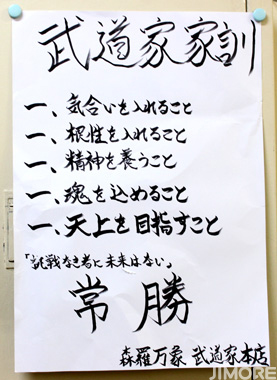 武道家家訓
一、気合いを入れること
一、根性を入れること
一、精神を養うこと
一、魂を込めること
一、天上を目指すこと
「挑戦なき者に未来はない」
常勝
森羅万象 武道家本店
JIMORE